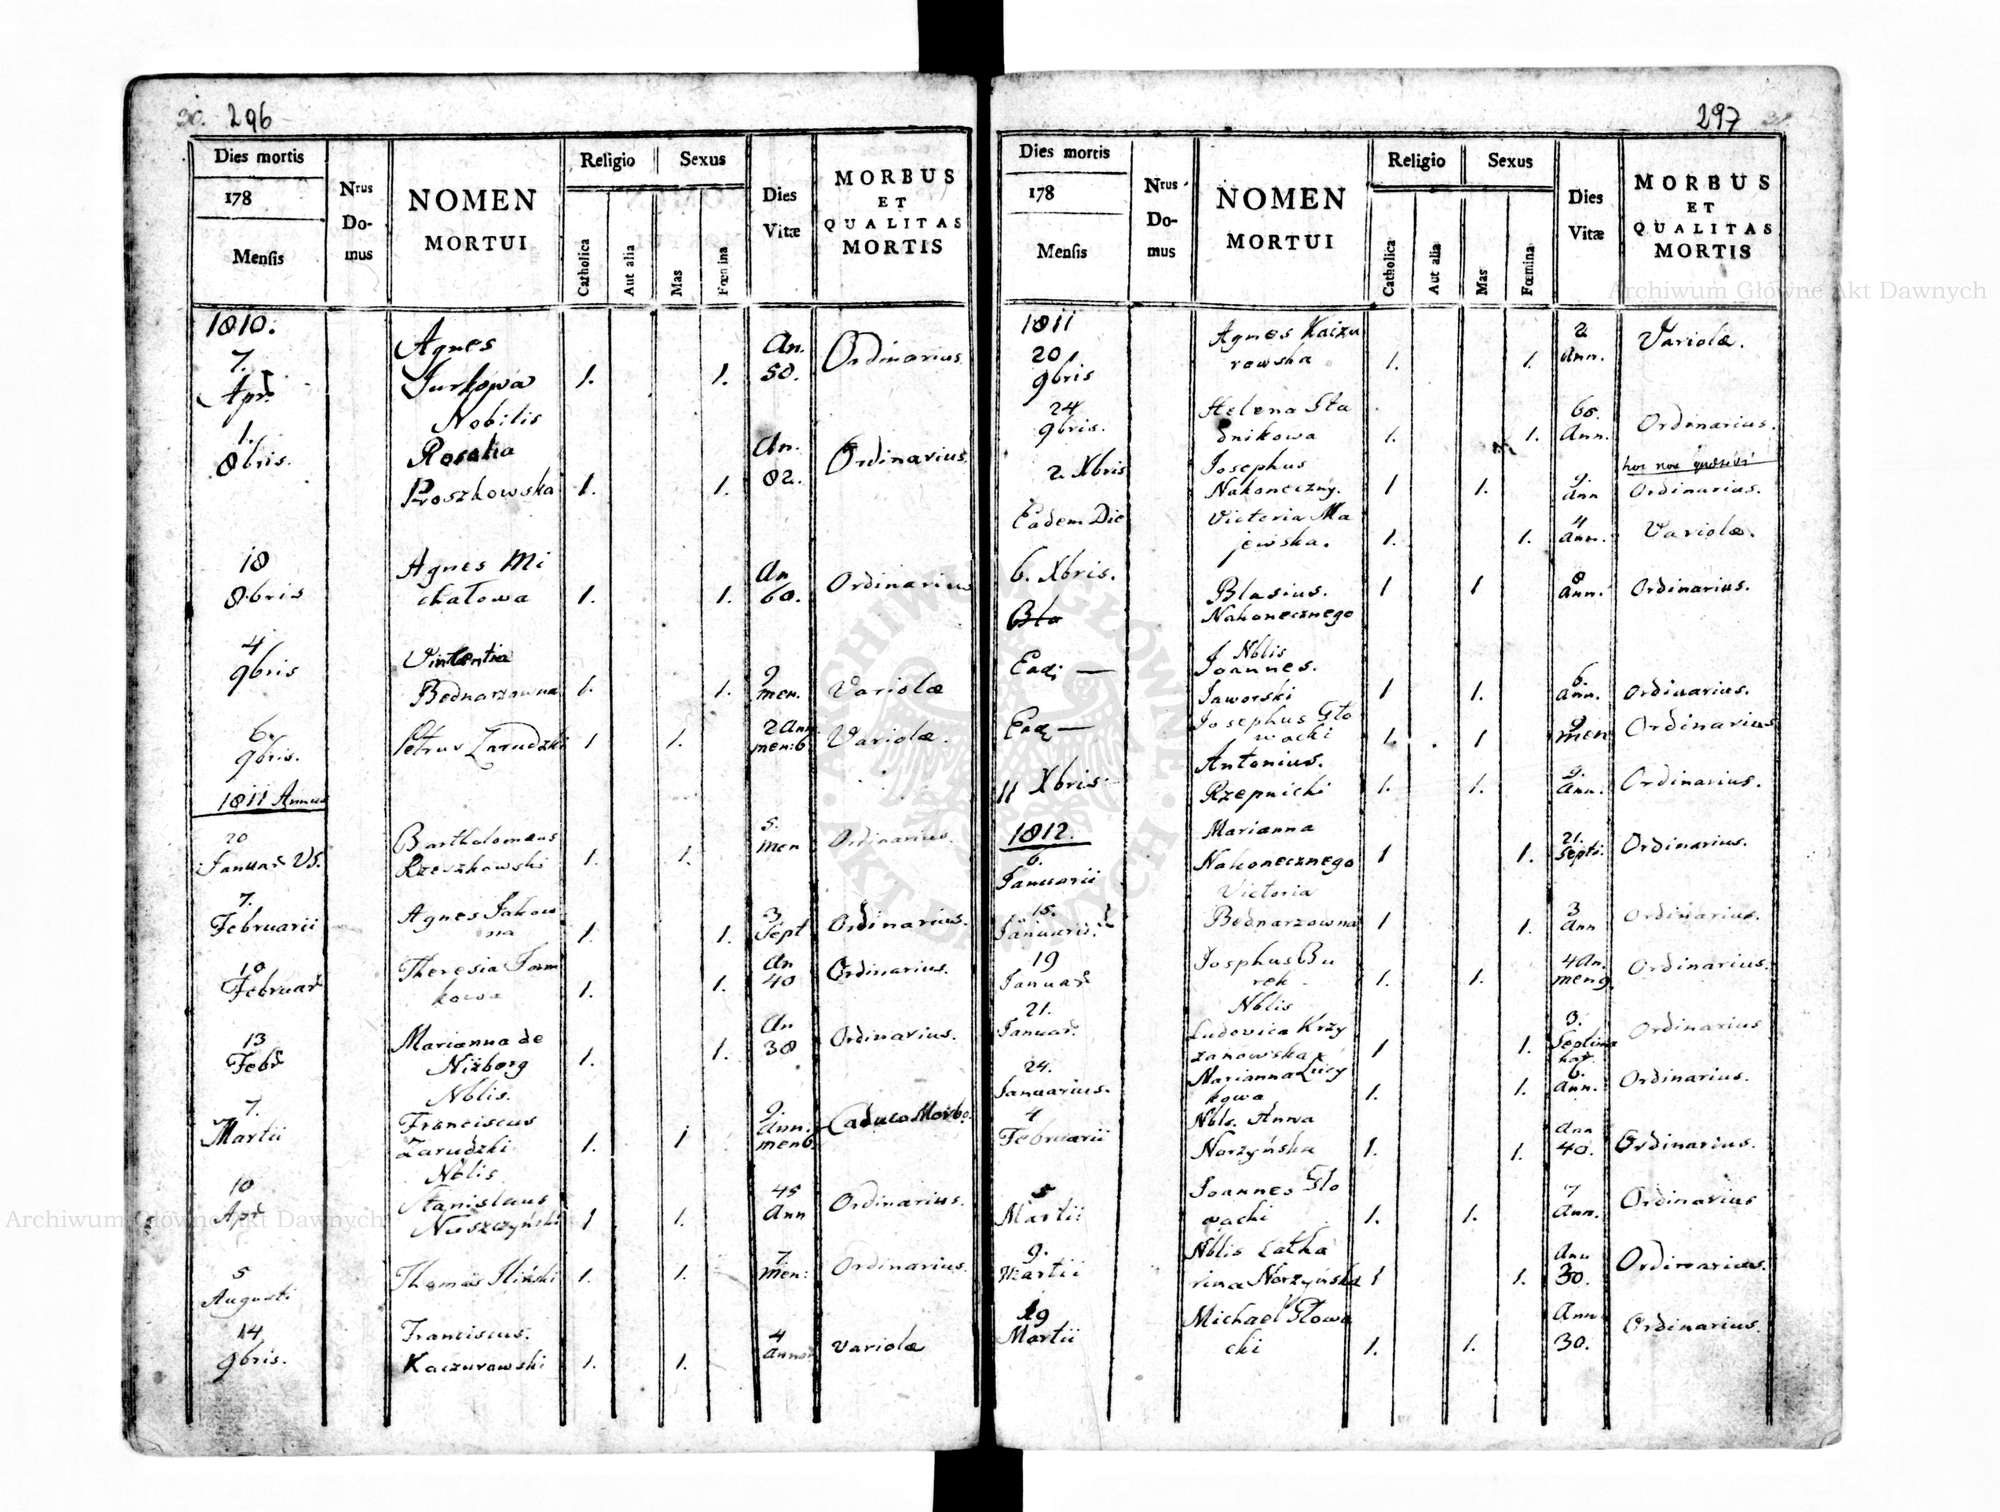 30. 296
Dies mortis
178
Mensis
Nrus Domus
NOMEN
MORTUI
Religio
Catholica
Aut alia
Sexus
Mas
Fœmina
Dies
Vitæ
MORBUS
ET
QUALITAS
MORTIS
1810.
7. Agnes An. Ordinarius
Apr. Jurkowa 1. 1. 50.
Nobilis
1. Rosalia An. Ordinarius.
8bris. Proszkowska 1. 1. 82.
18 Agnes Mi An Ordinarius
8bris chałowa 1. 1. 60.
4 Vintentia 9
9bris Bednarzowna 1. 1. men. Variolæ
6. Petrus Zarudzki 1 1. 2 Ann Variolæ.
9bris. men: 6
1811 Annus
20 Bartholomæus 5. Ordinarius.
Januar VS. Rzeszkowski 1. 1. men
7. Agnes Jakow 3 Ordinarius.
Februarii na 1. 1. Sept
10 Theresia An Ordinarius.
Februar kowa 1. 1. 40
13 Marianna de An Ordinarius.
Febr Nizborg 1. 1. 38
Nblis.
7. Franciscus 9. Caduco Morbo.
Martii Zarudzki 1. 1 Ann. men 6.
Nblis
10 Stanislaus 45 Ordinarius.
Apr Nuszczyński 1 1. Ann
5 Thomas Iliński 1. 1. 7 Ordinarius.
Augusti men:
14 Franciscus. 4 Variolæ
9bris. Kaczurowski 1. 1. Annor
297
Dies mortis
178
Mensis
Nrus Domus
NOMEN
MORTUI
Religio
Catholica
Aut alia
Sexus
Mas
Fœmina
Dies
Vitæ
MORBUS
ET
QUALITAS
MORTIS
1811
20 Agnes Kaczu 2 Variolæ.
9bris rowska 1. 1. Ann.
24 Helena Sta 60. Ordinarius.
9bris. dnikowa 1. 1. Ann.
2 Xbris Josephus
Nakoneczny. 1 1. 9. Ann Ordinarius.
Eadem Die Victoria Ma 4 Variolæ.
jewska. 1. 1. Ann.
6. Xbris. Blasius. 1 1 8 Ann. Ordinarius.
Bla Nakonecznego
Nblis
Ead: — Joannes. 6.
Jaworski 1 1. Ann. Ordinarius.
Ead — Josephus Gło 9 Ordinarius
wacki 1. 1 men
Antonius.
11 Xbris. Rzepnicki 1. 1. 9. Ann. Ordinarius.
1812. Marianna 21. Ordinarius.
6. Nakonecznego 1 1. Septi:
Januarii
Victoria
15. Bednarzowna 1 1. 3 Ann Ordinarius.
Januarii.
19 Josphus Bu 4 An. Ordinarius.
Januar rek 1. 1. men 9.
Nblis
21. Ludovica Krzy 3. Ordinarius
Januar. zanowska 1 1. Septima
24. Marianna 6. Ordinarius.
Januarius. kowa 1. 1. Ann.
4 Nbls. Anna Ann Ordinarius.
Februarii Norzyńska 1. 1. 40.
5 Joannes Gło 7 Ordinarius
Martii wacki 1. 1. Ann.
9. Nblis Catha Ann Ordinarius.
Martii rina Norzyńska 1 1. 30.
19 Michael Głowa Ann Ordinarius.
Martii cki 1. 1. 30.
Archiwum Główne Akt Dawnych
Archiwum Główne Akt Dawnych
ARCHIWUM GŁÓWNE AKT DAWNYCH